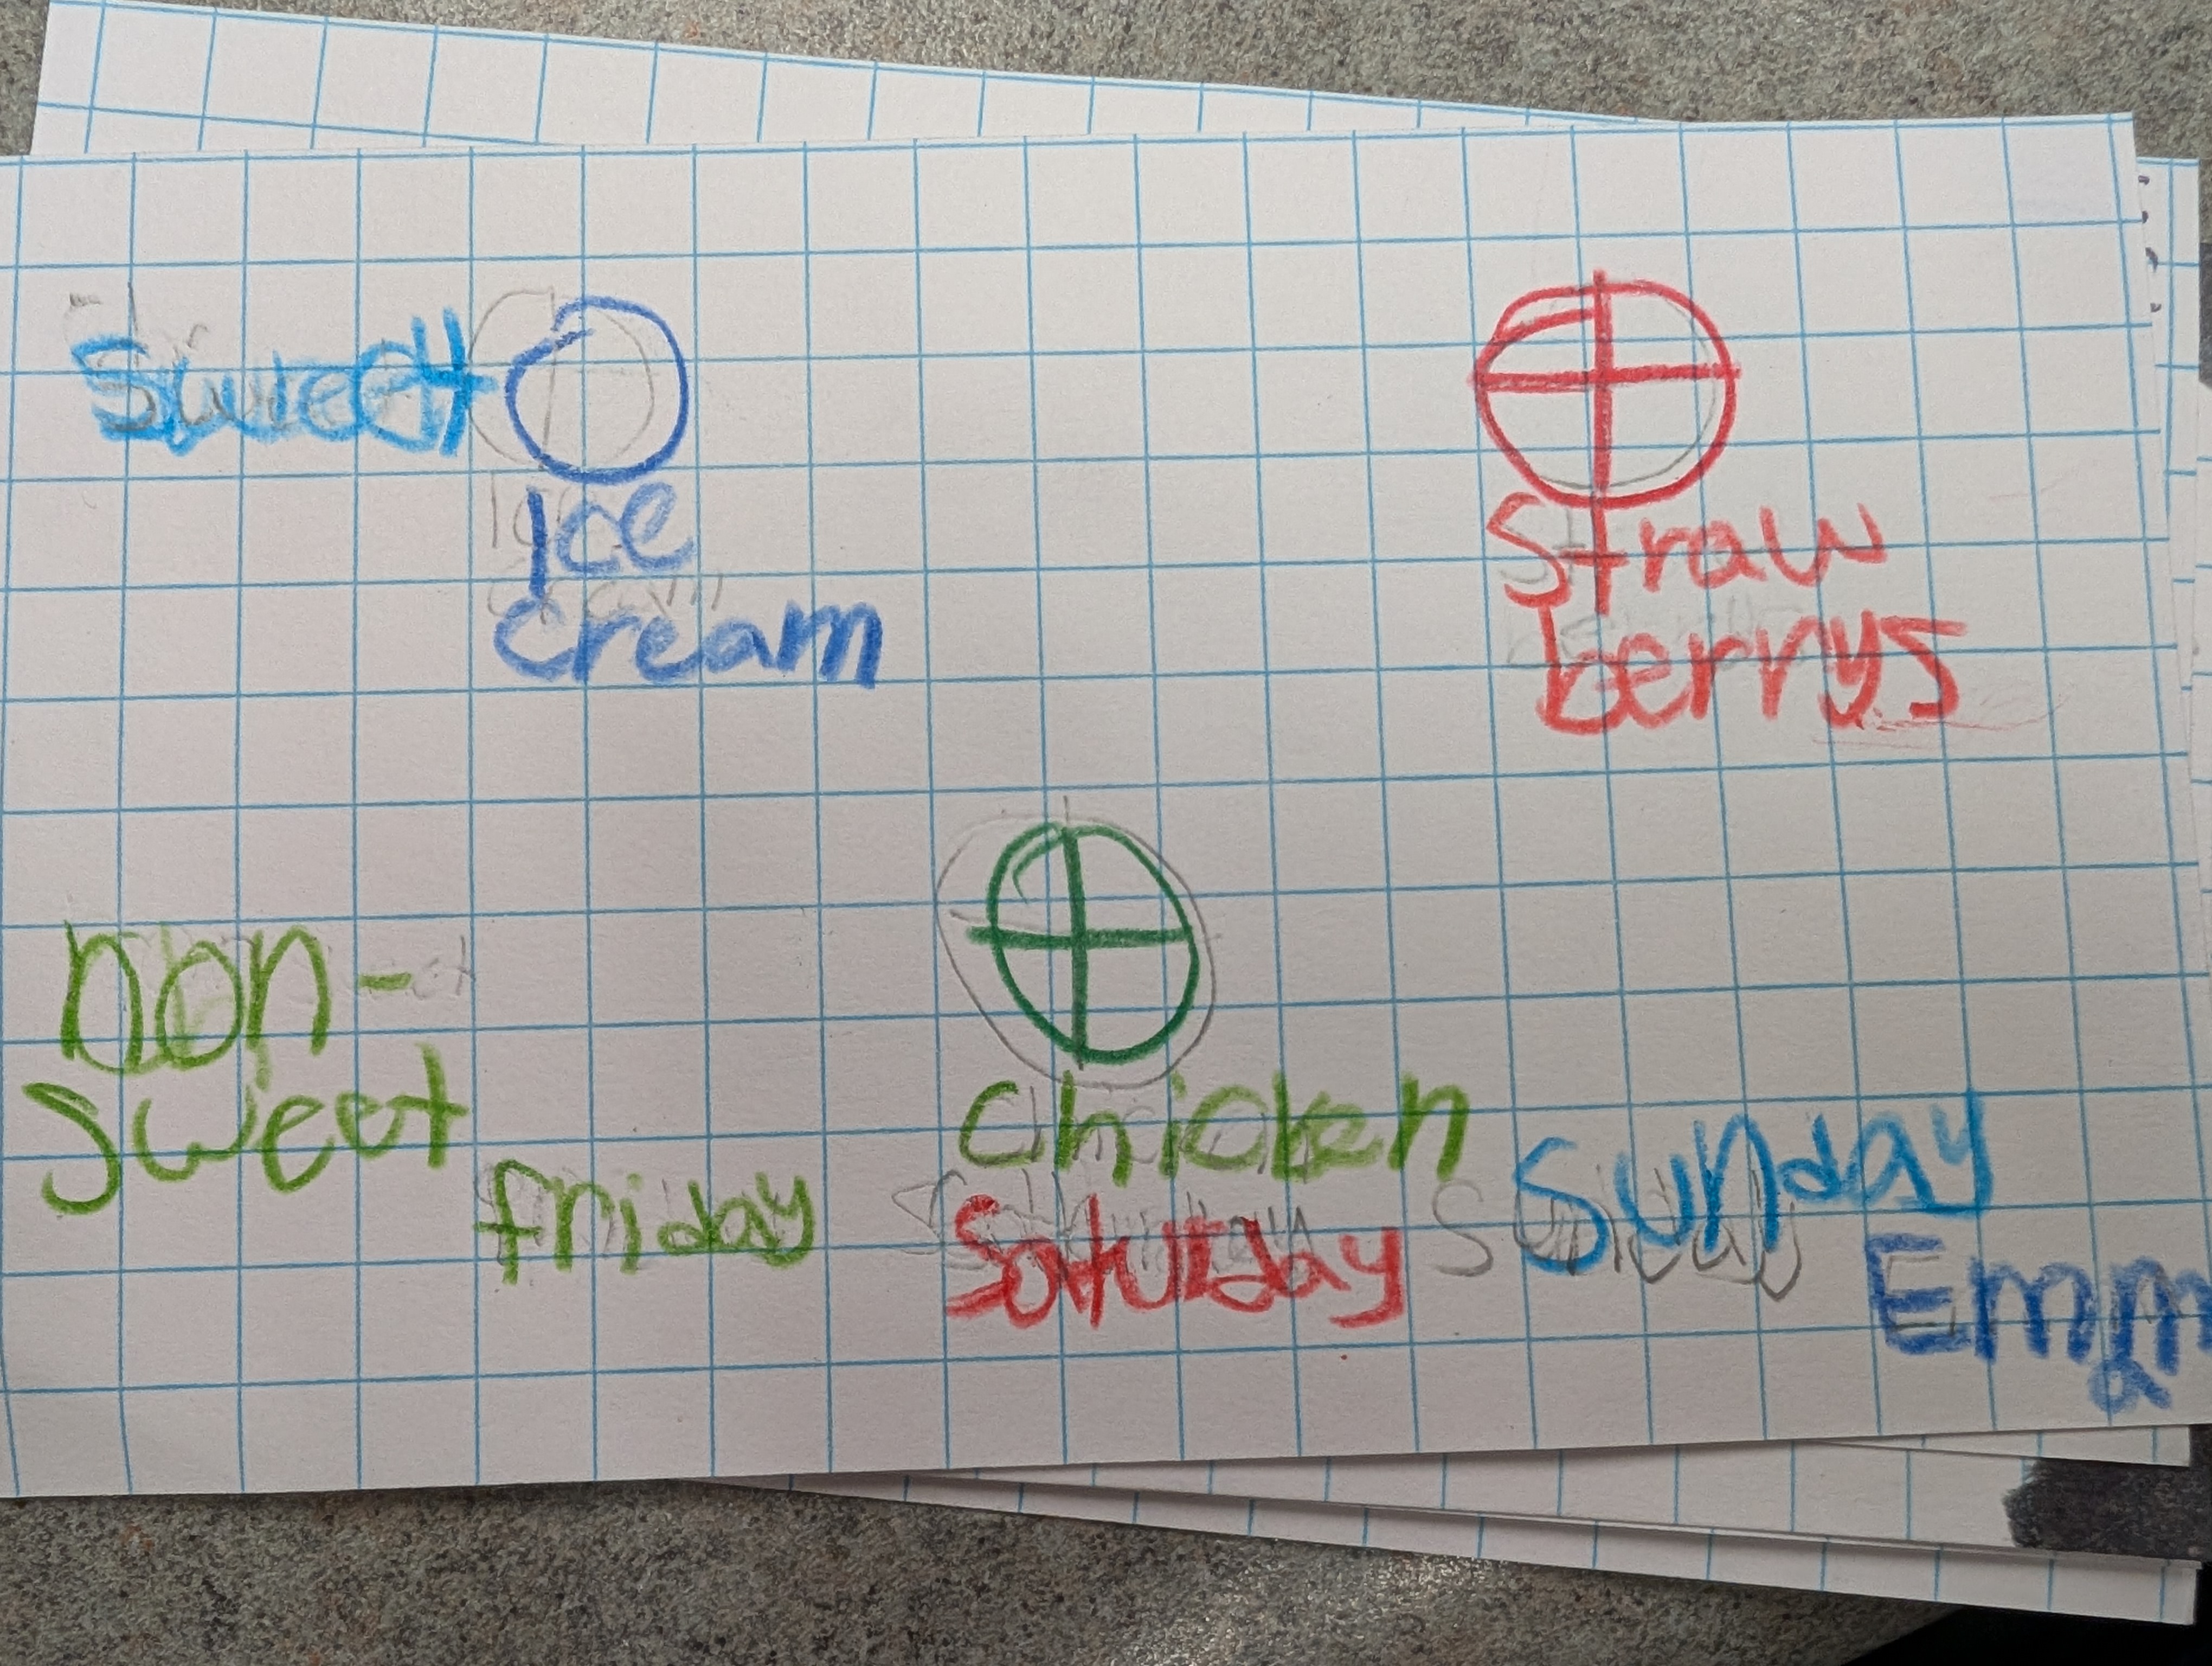 Sweet
Ice
cream
Straw
berrys
non-
sweet
Chicken
friday
Saturday
Sunday
Emma